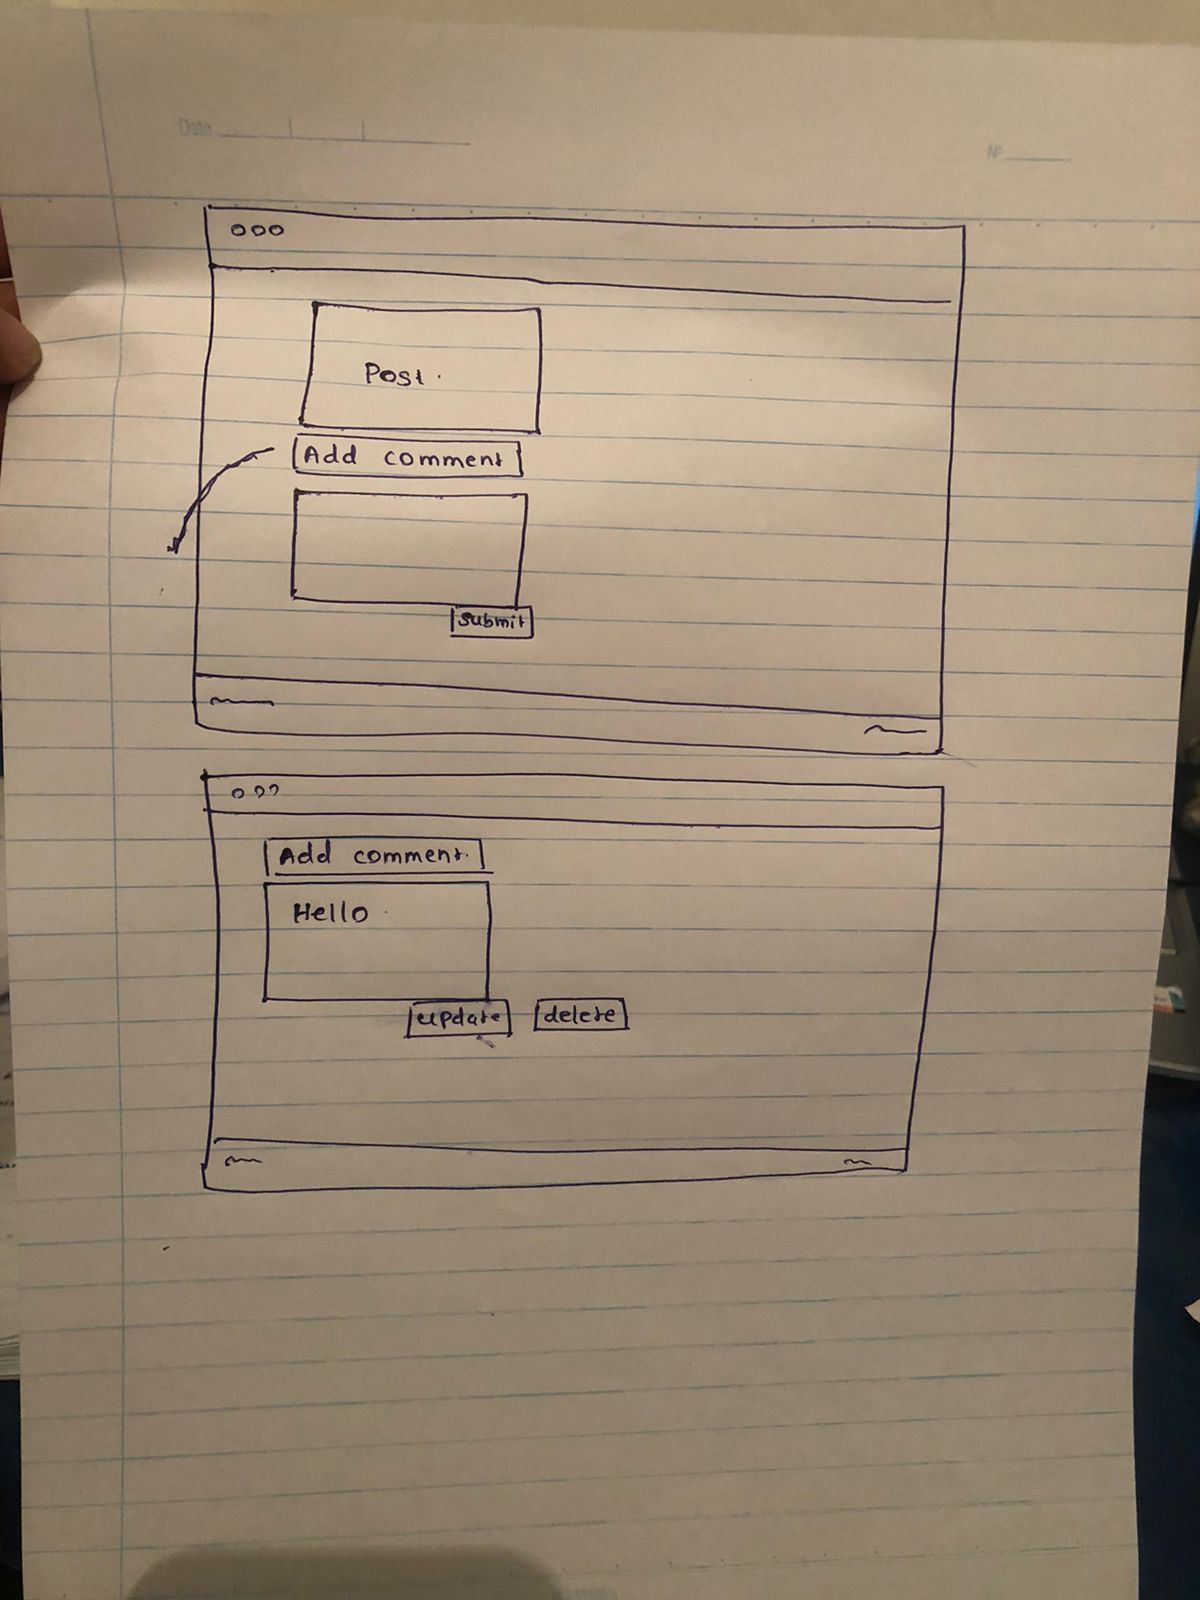 Date
Nº
Post.
Add comment
Submit
Add comment.
Hello
update
delete